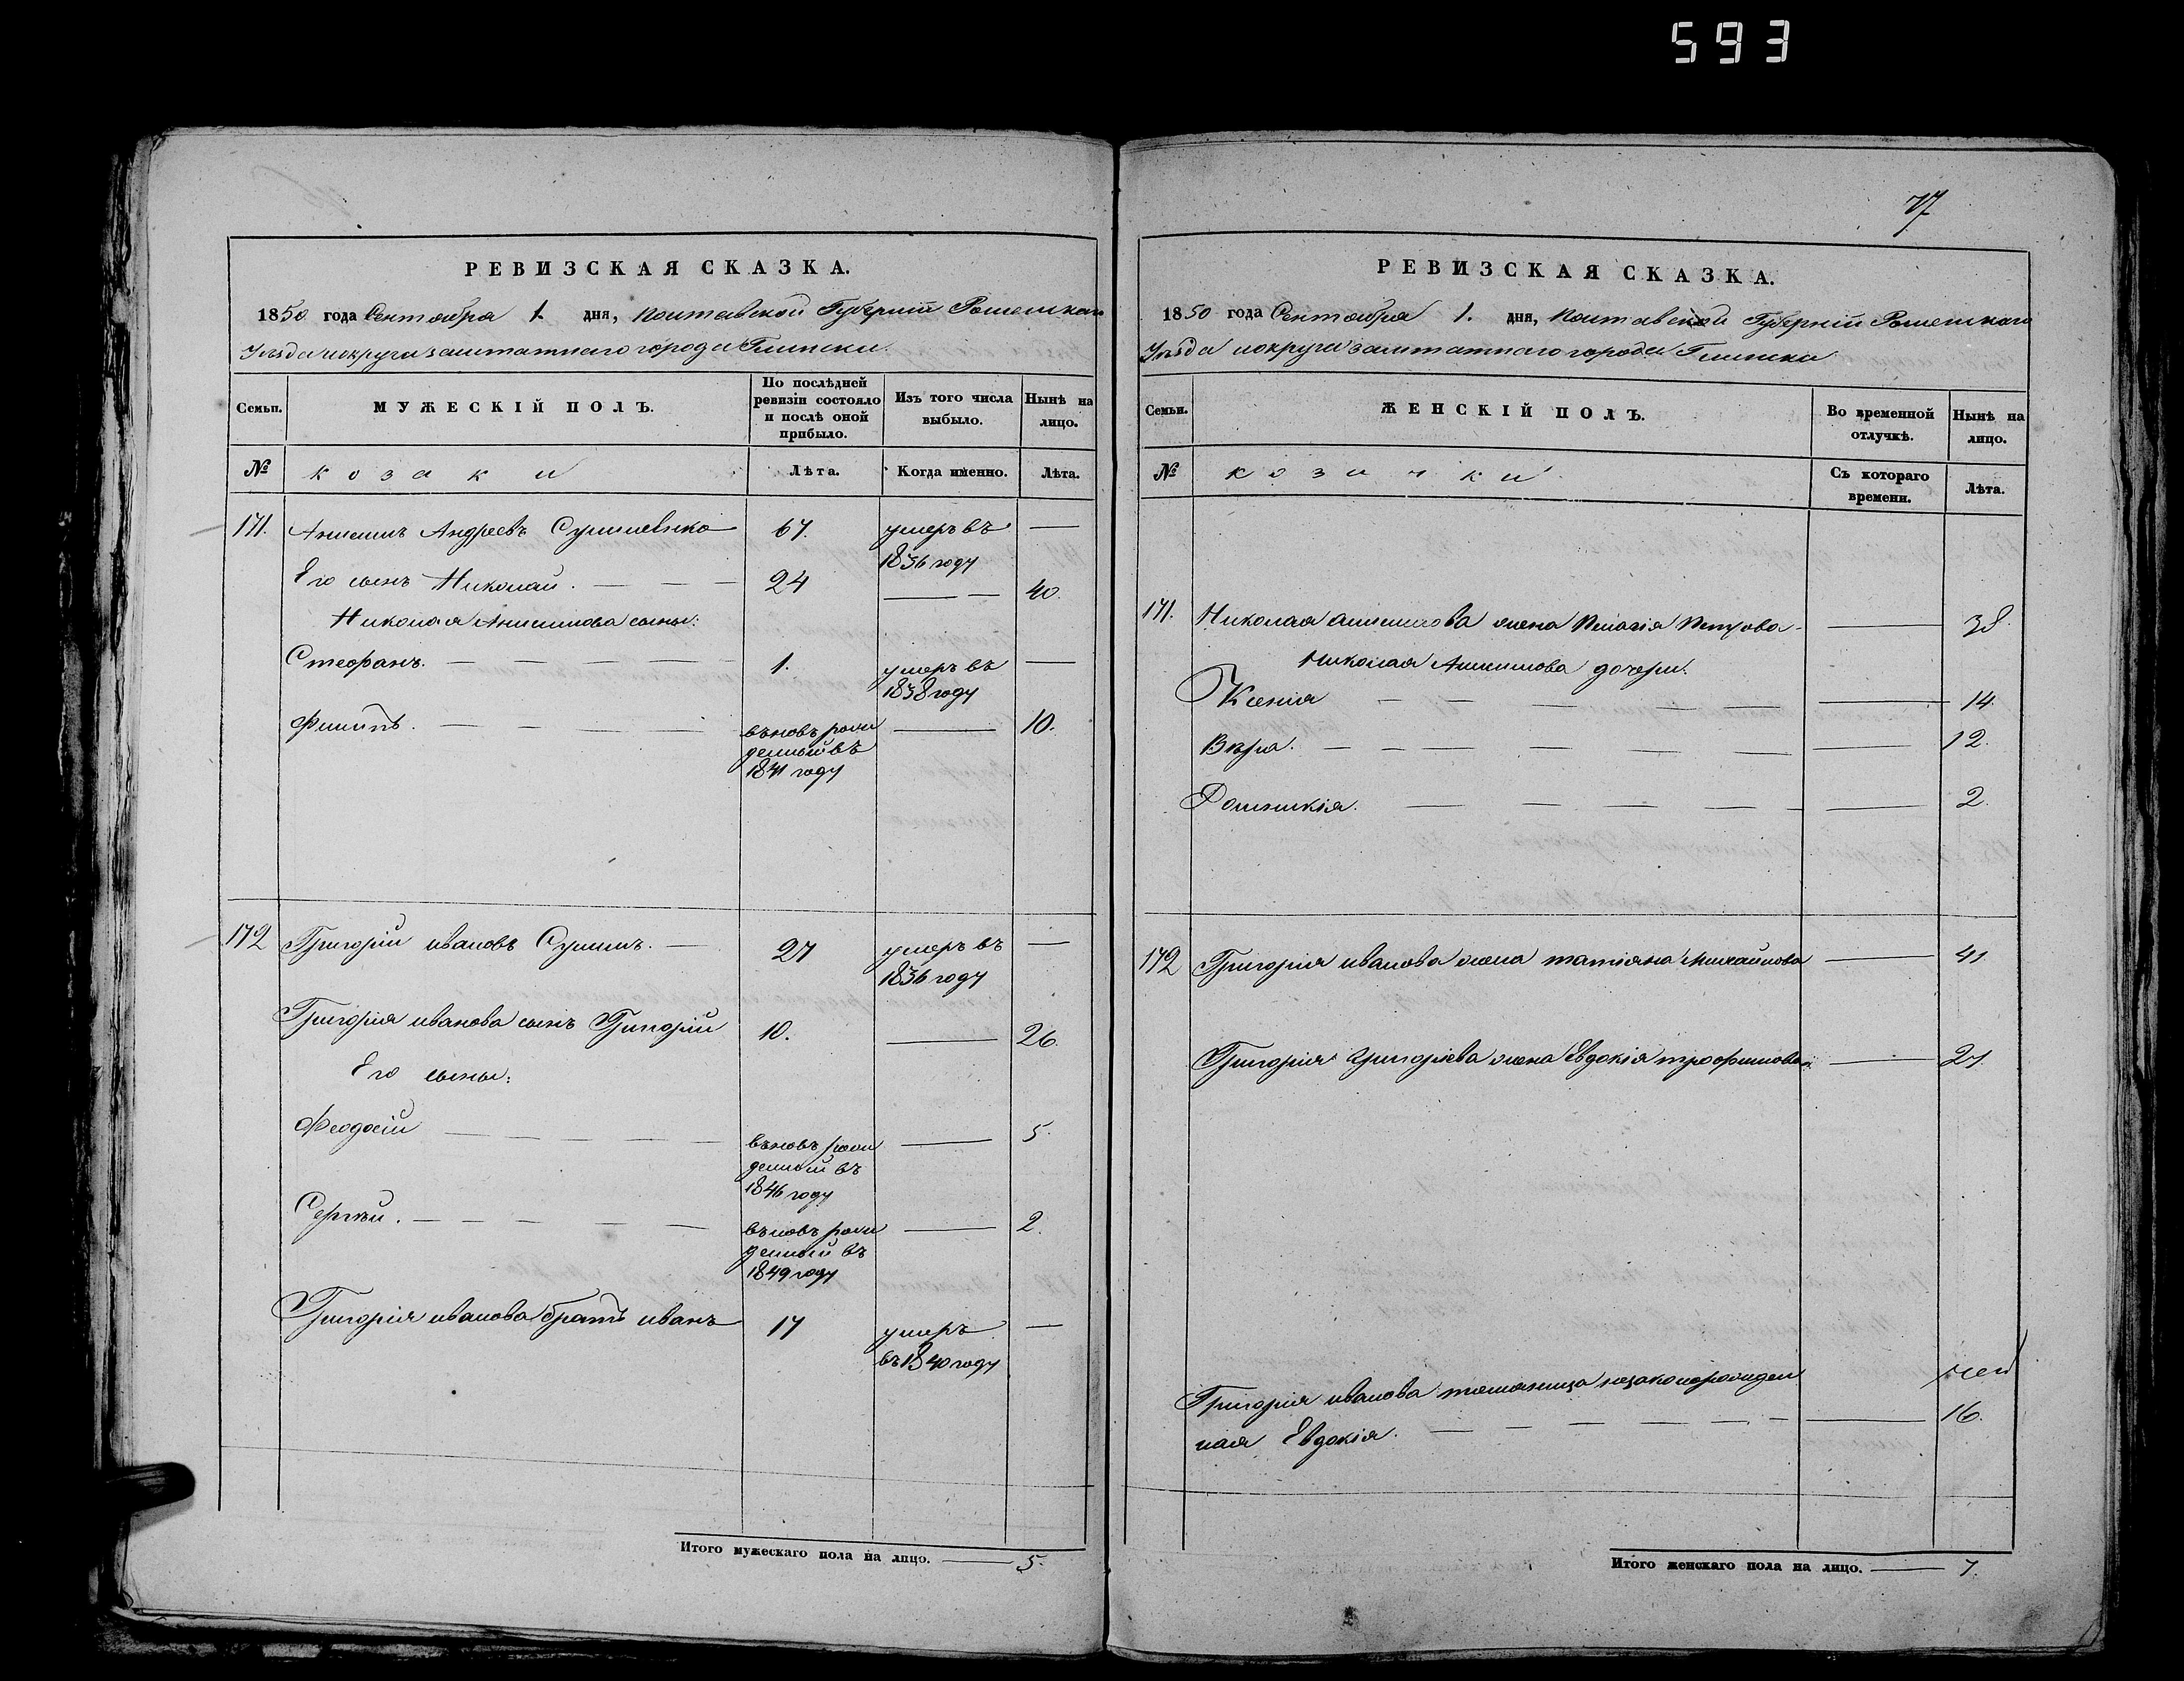 593
РЕВИЗСКАЯ СКАЗКА.
1850 года Сентября 1. дня, Полтавской Губернии Роменскаго
Уезда округи заштатнаго города Глинска.
Семьи. МУЖЕСКІЙ ПОЛЪ. По послѣдней ревизіи состояло и послѣ оной прибыло. Изъ того числа выбыло. Нынѣ на лицо.
№ козаки Лѣта. Когда именно. Лѣта.
171. Анисимъ Андреевъ 67. умеръ въ —
1836 году
Его сынъ Николай. — — — 24 — — 40.
Николая Анисимова сыны:
Стефанъ. — — — — — 1. умеръ въ —
1838 году
Филипъ. — — — — вьновь рож — 10.
денный въ
1841 году
172 Григорій ивановъ Сулимъ. — 27 умеръ въ —
1836 году
Григорія иванова сынъ Григорій 10. — 26.
Его сыны:
Феодосій — — — — вьновь рож — 5.
денный въ
1846 году
Сергѣй. — — — — — вьновь рож — 2.
денный въ
1849 году
Григорія иванова братъ иванъ 17 умеръ —
въ 1840 году
Итого мужескаго пола на лицо. — 5.
77
РЕВИЗСКАЯ СКАЗКА.
1850 года Сентября 1. дня, Полтавской Губерніи Роменскаго
Уезда округи заштатнаго города Глинска
Семьи. ЖЕНСКІЙ ПОЛЪ. Во временной отлучкѣ. Нынѣ на лицо.
№ козачки Съ котораго времени. Лѣта.
171. Николая анисимова жена Пелагія Петрова — — 38.
Николая Анисимова дочери:
Ксенія — — — — — — 14.
Вѣра. — — — — — — — 12.
Домникія. — — — — — — 2.
172 Григорія иванова жена татіяна Михайлова — 41.
Григорія Григоріева жена Евдокія трофимова. — 21.
Григорія иванова незаконорожден
ная Евдокія. — — — — — — — 16.
Итого женскаго пола на лицо. — 7.